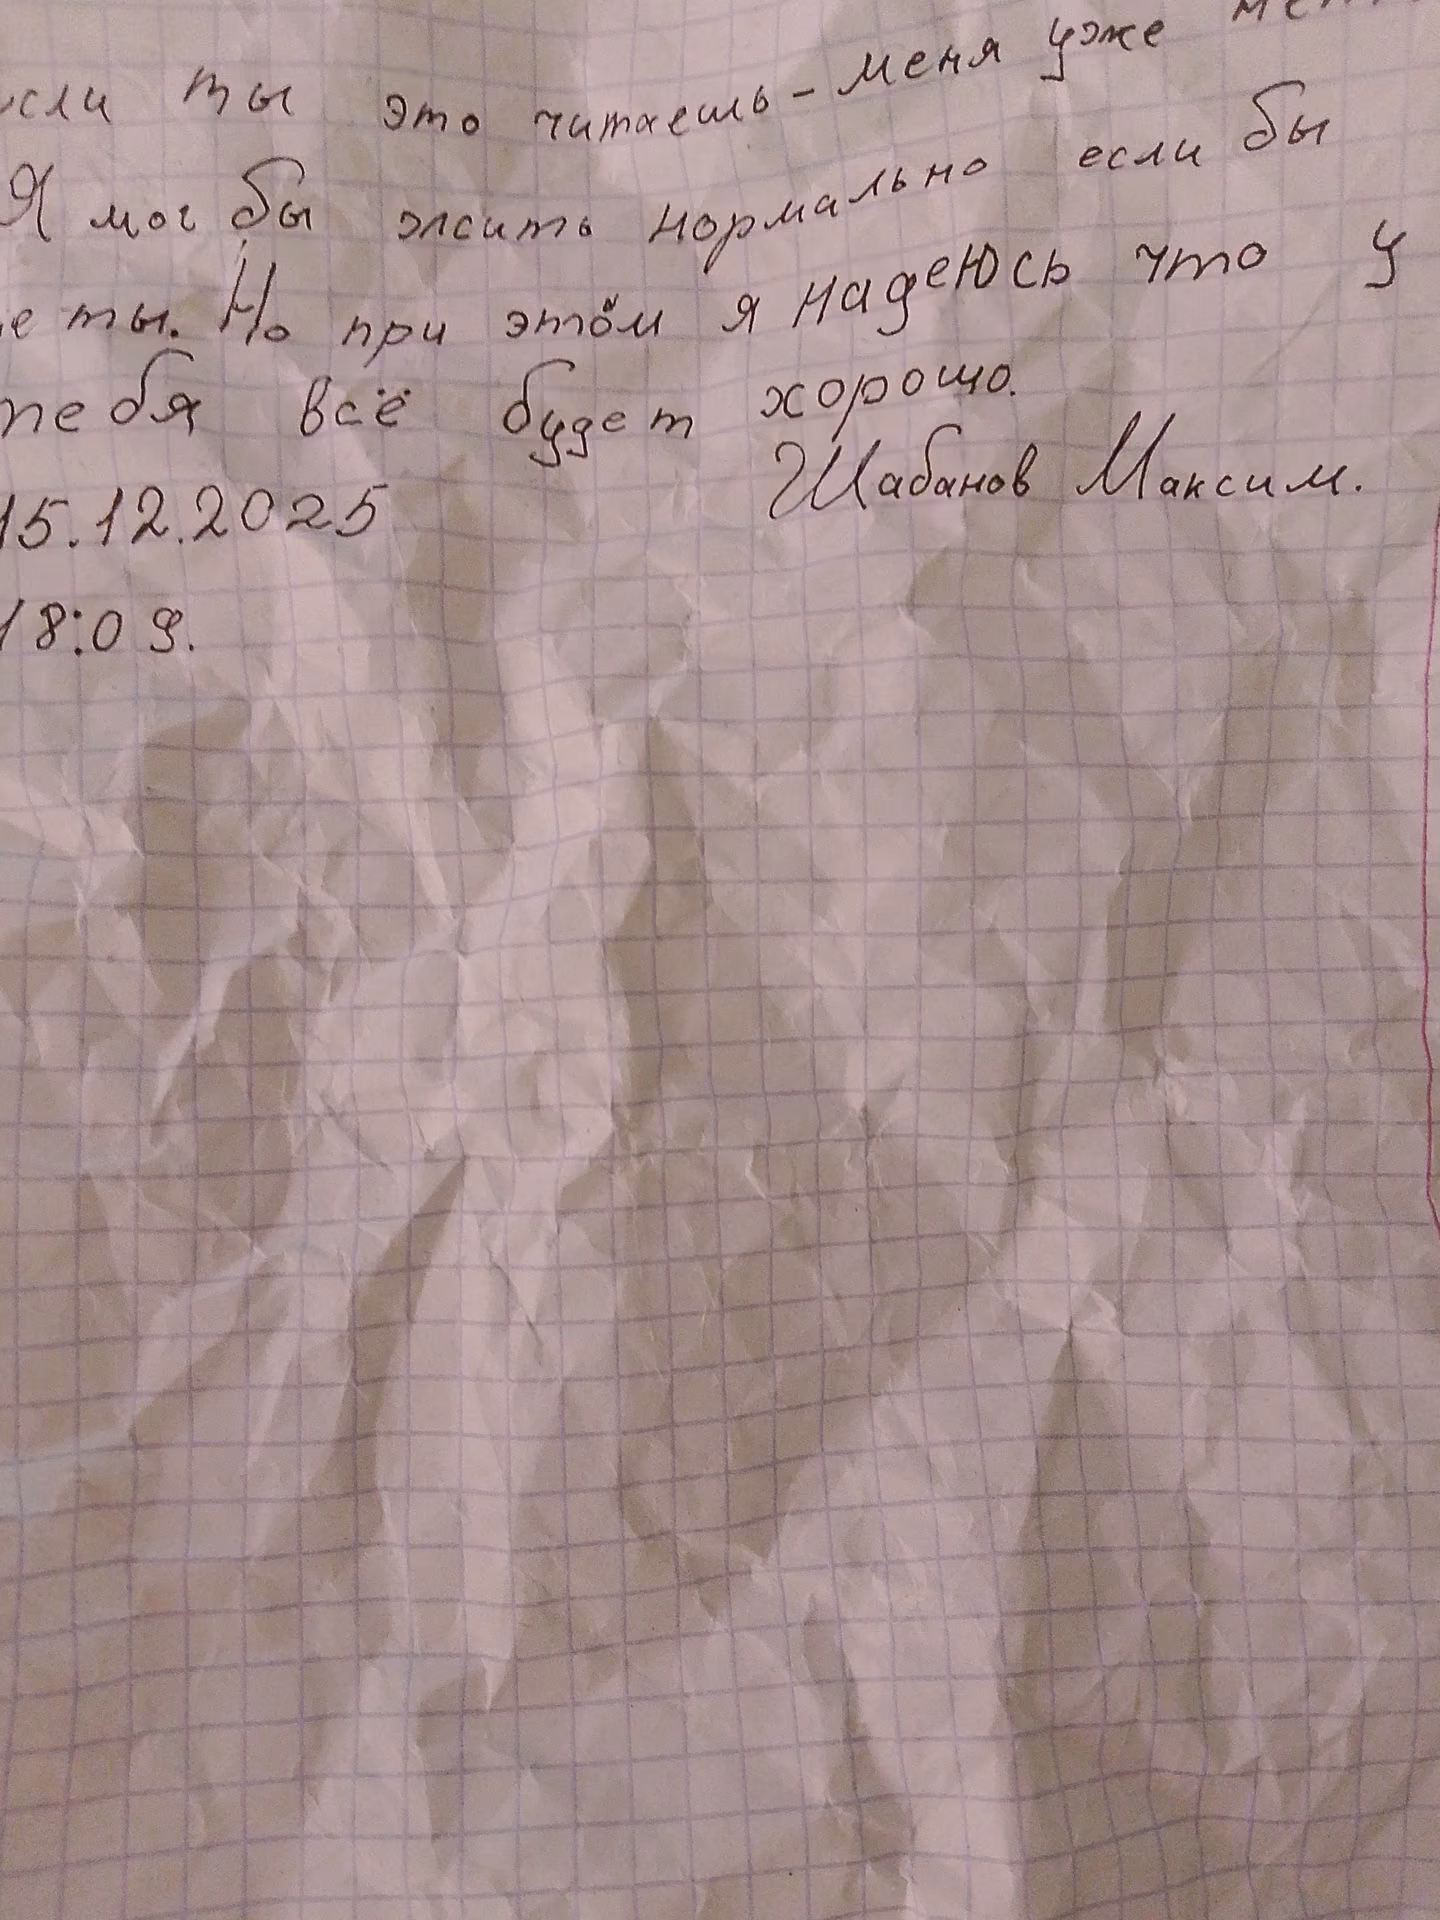 если ты это читаешь - меня уже
Я мог бы жить нормально если бы
не ты. Но при этом я надеюсь что у
тебя всё будет хорошо.
Шабанов Максим.
15.12.2025
18:09.